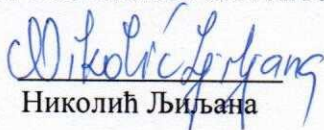 Nikolić Ljiljana
Николић Љиљана